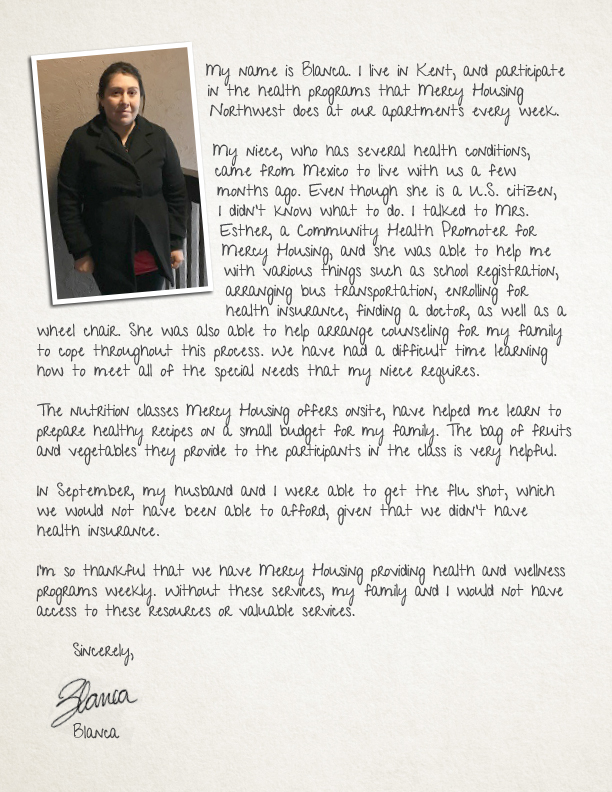 My name is Blanca. I live in Kent, and participate
in the health programs that Mercy Housing
Northwest does at our apartments every week.
My niece, who has several health conditions,
came from Mexico to live with us a few
months ago. Even though she is a U.S. citizen,
I didn't know what to do. I talked to Mrs.
Esther, a Community Health Promoter for
Mercy Housing, and she was able to help me
with various things such as school registration,
arranging bus transportation, enrolling for
health insurance, finding a doctor, as well as a
wheel chair. She was also able to help arrange counseling for my family
to cope throughout this process. We have had a difficult time learning
how to meet all of the special needs that my niece requires.
The nutrition classes Mercy Housing offers onsite, have helped me learn to
prepare healthy recipes on a small budget for my family. The bag of fruits
and vegetables they provide to the participants in the class is very helpful.
In September, my husband and I were able to get the flu shot, which
we would not have been able to afford, given that we didn't have
health insurance.
I'm so thankful that we have Mercy Housing providing health and wellness
programs weekly. Without these services, my family and I would not have
access to these resources or valuable services.
Sincerely,
Blanca
Blanca